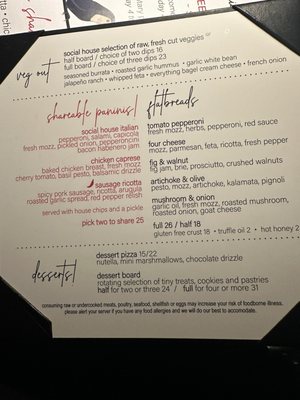 veg out
social house selection of raw, fresh cut veggies GF
half board / choice of two dips 16
full board / choice of three dips 23
seasoned burrata • roasted garlic hummus • garlic white bean
jalapeño ranch • whipped feta • everything bagel cream cheese • french onion
shareable paninis
social house italian
pepperoni, salami, capicola
fresh mozz, pickled onion, pepperoncini
bacon habenero jam
chicken caprese
baked chicken breast, fresh mozz
cherry tomato basil pesto, balsamic drizzle
sausage ricotta
spicy pork sausage, ricotta, arugula
roasted garlic spread, red pepper relish
served with house chips and a pickle
pick two to share 25
flatbreads
tomato pepperoni
fresh mozz, herbs, pepperoni, red sauce
four cheese
mozz, parmesan, feta, ricotta, fresh pepper
fig & walnut
fig jam, brie, prosciutto, crushed walnuts
artichoke & olive
pesto, mozz, artichoke, kalamata, pignoli
mushroom & onion
garlic oil, fresh mozz, roasted mushroom,
roasted onion, goat cheese
full 26 / half 18
gluten free crust 18 • truffle oil 2 • hot honey 2
desserts
dessert pizza 15/22
nutella, mini marshmallows, chocolate drizzle
dessert board
rotating selection of tiny treats, cookies and pastries
half for two or three 24 / full for four or more 31
consuming raw or undercooked meats, poultry, seafood, shellfish or eggs may increase your risk of foodborne illness.
please alert your server if you have any food allergies and we will do our best to accomodate.